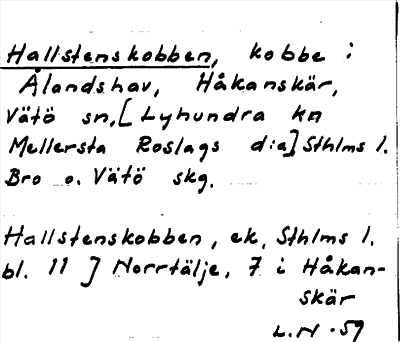 Hallstenskobben, kobbe i
Ålandshav, Håkanskär,
Vätö sn, [Lyhundra kn
Mellersta Roslags d:a] Sthlms l.
Bro o. Vätö skg.
Hallstenskobben, ek, Sthlms l.
bl. 11 ] Norrtälje, 7 i Håkan-
skär
L.N -59